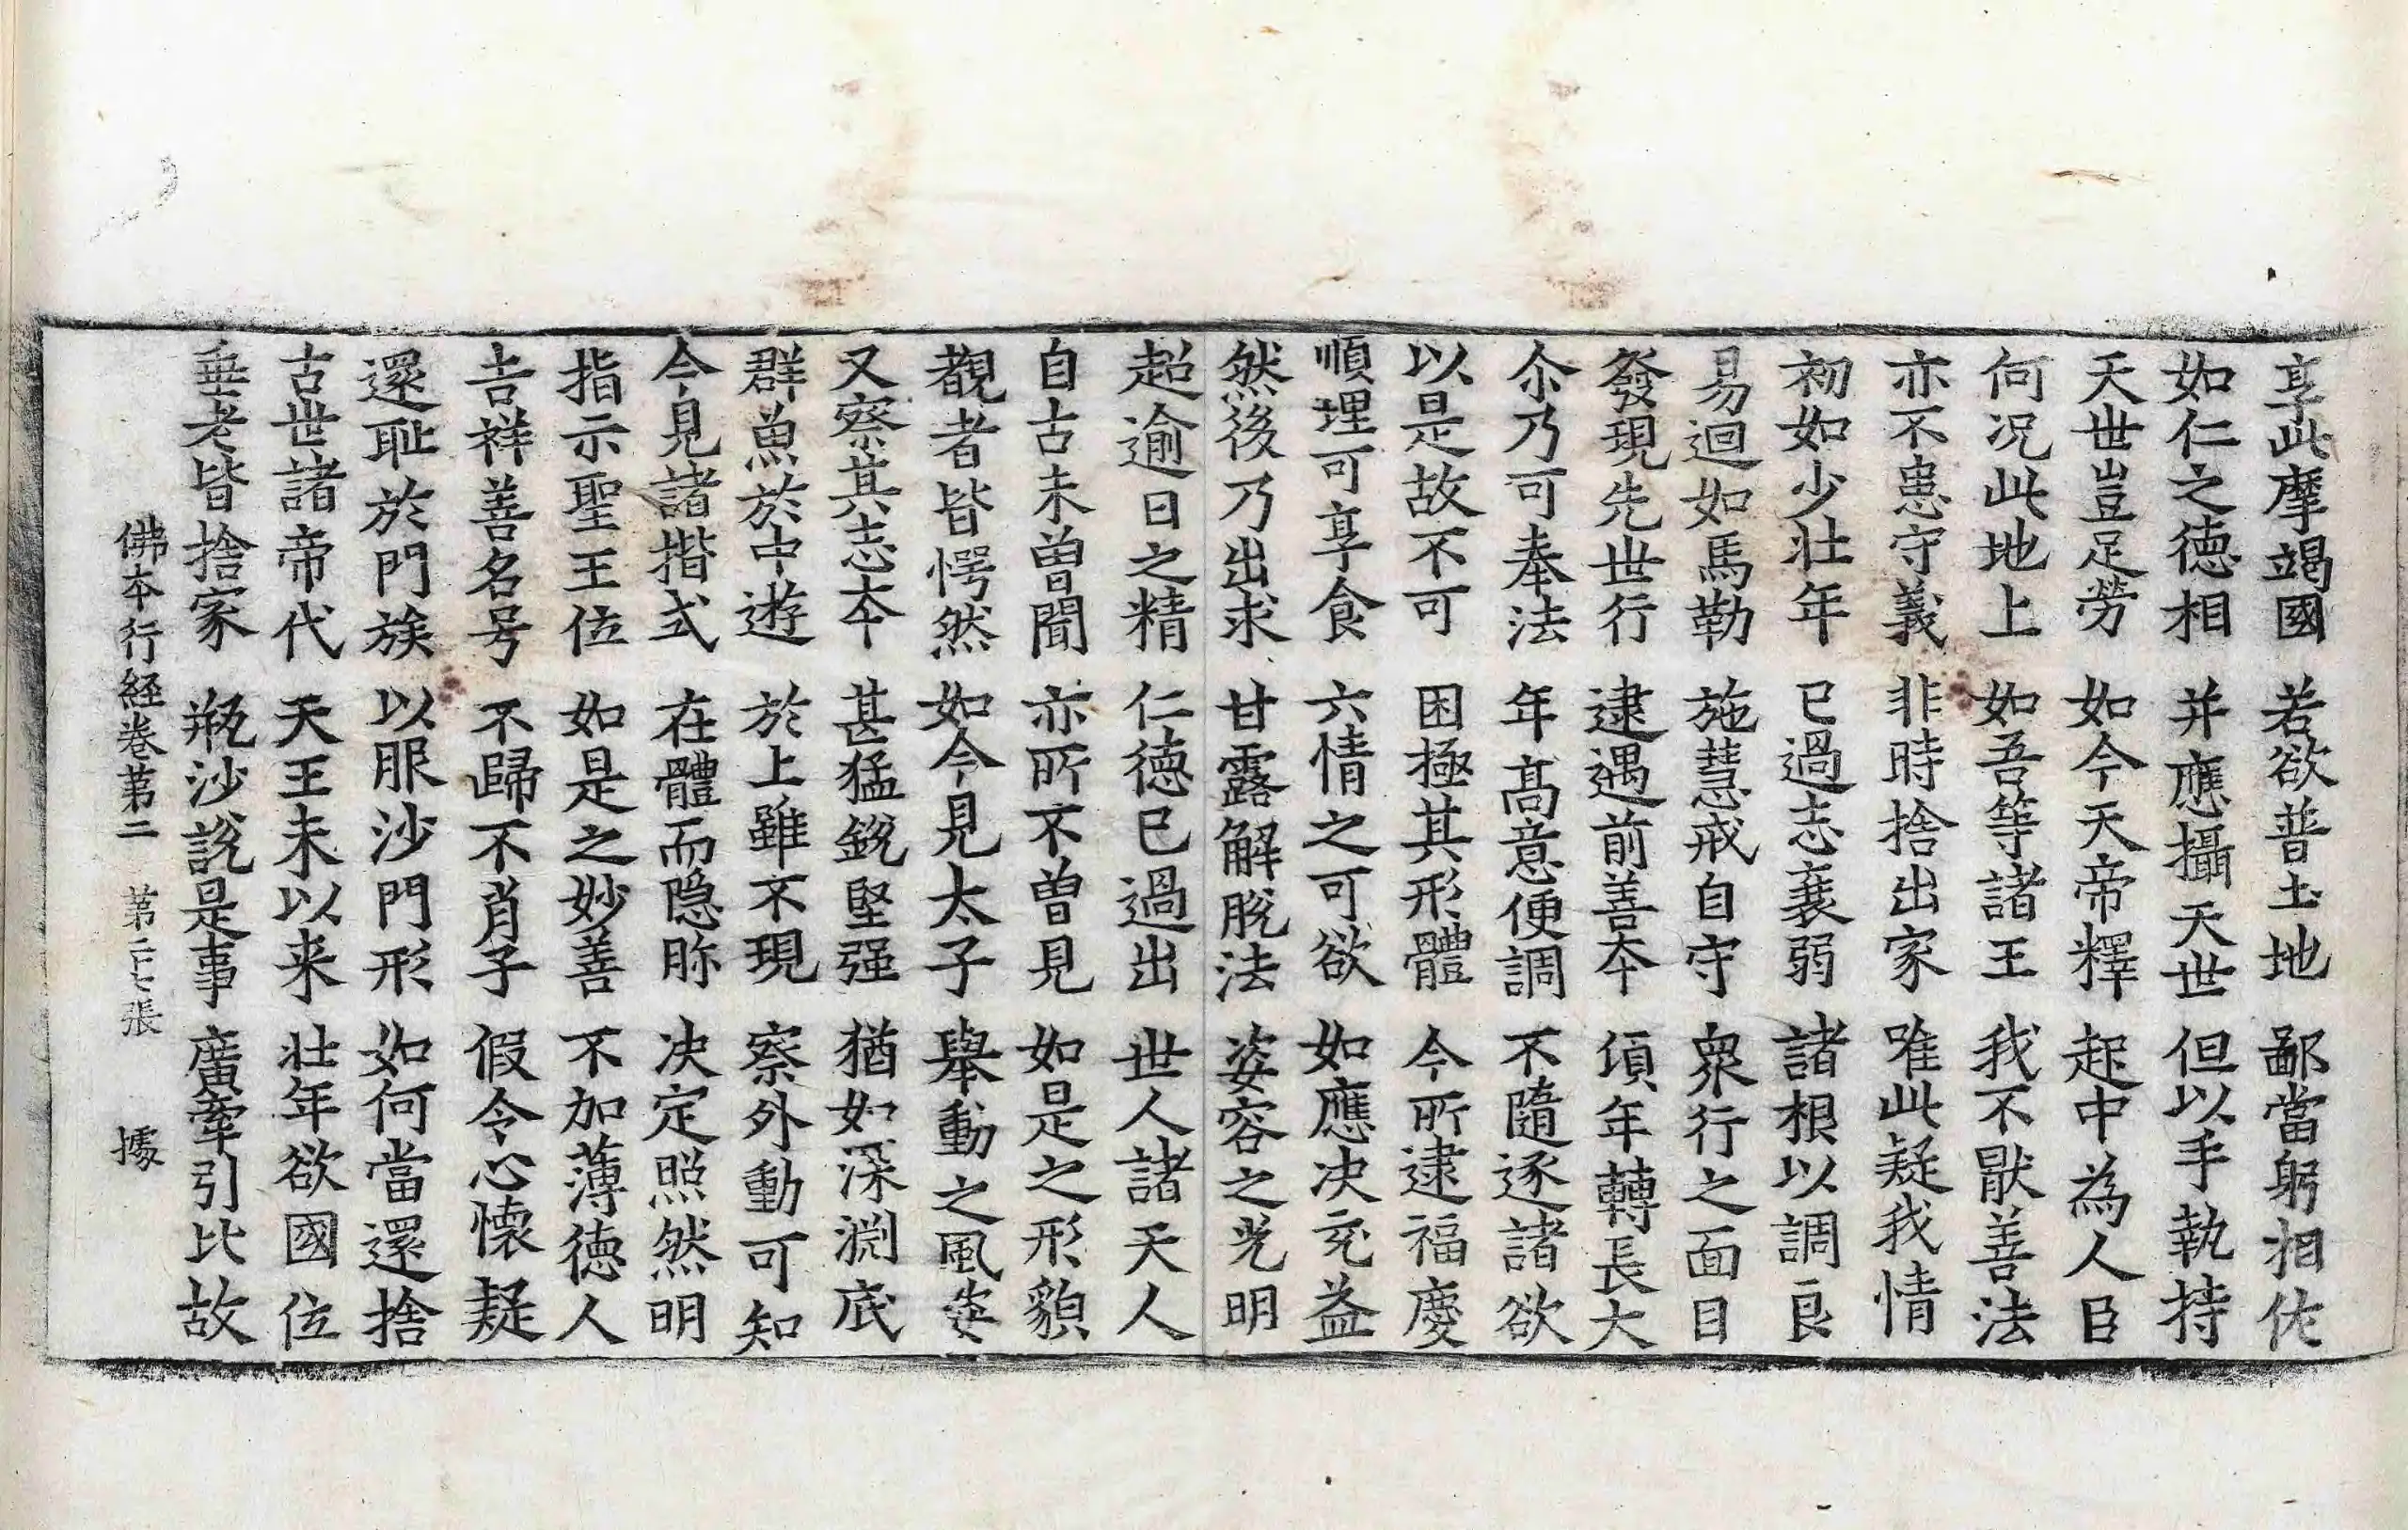 享此摩竭國 若欲普土地 鄙當躬相佐
如仁之德相 并應攝天世 但以手執持
天世豈足勞 如今天帝釋 起中為人臣
何況此地上 如吾等諸王 我不猒善法
亦不患守義 非時捨出家 唯此疑我情
初如少壯年 已過志衰弱 諸根以調良
易迴如馬勒 施慧戒自守 衆行之面目
發現先世行 逮遇前善本 須年轉長大
尒乃可奉法 年高意便調 不隨逐諸欲
以是故不可 困極其形體 今所逮福慶
順理可享食 六情之可欲 如應决充益
然後乃出求 甘露解脫法 姿容之光明
超逾日之精 仁德已過出 世人諸天人
自古未曾聞 亦所不曾見 如是之形貌
覩者皆愕然 如今見太子 舉動之風姿
又察其志本 甚猛銳堅强 猶如深淵底
群魚於中遊 於上雖不現 察外動可知
今見諸揩式 在體而隱眎 决定照然明
指示聖王位 如是之妙善 不加薄德人
吉祥善名号 不歸不肖子 假令心懷疑
還恥於門族 以服沙門形 如何當還捨
古世諸帝代 天王未以来 壯年欲國位
垂老皆捨家 瓶沙說是事 廣牽引比故
佛本行経卷第二 第二七張 據